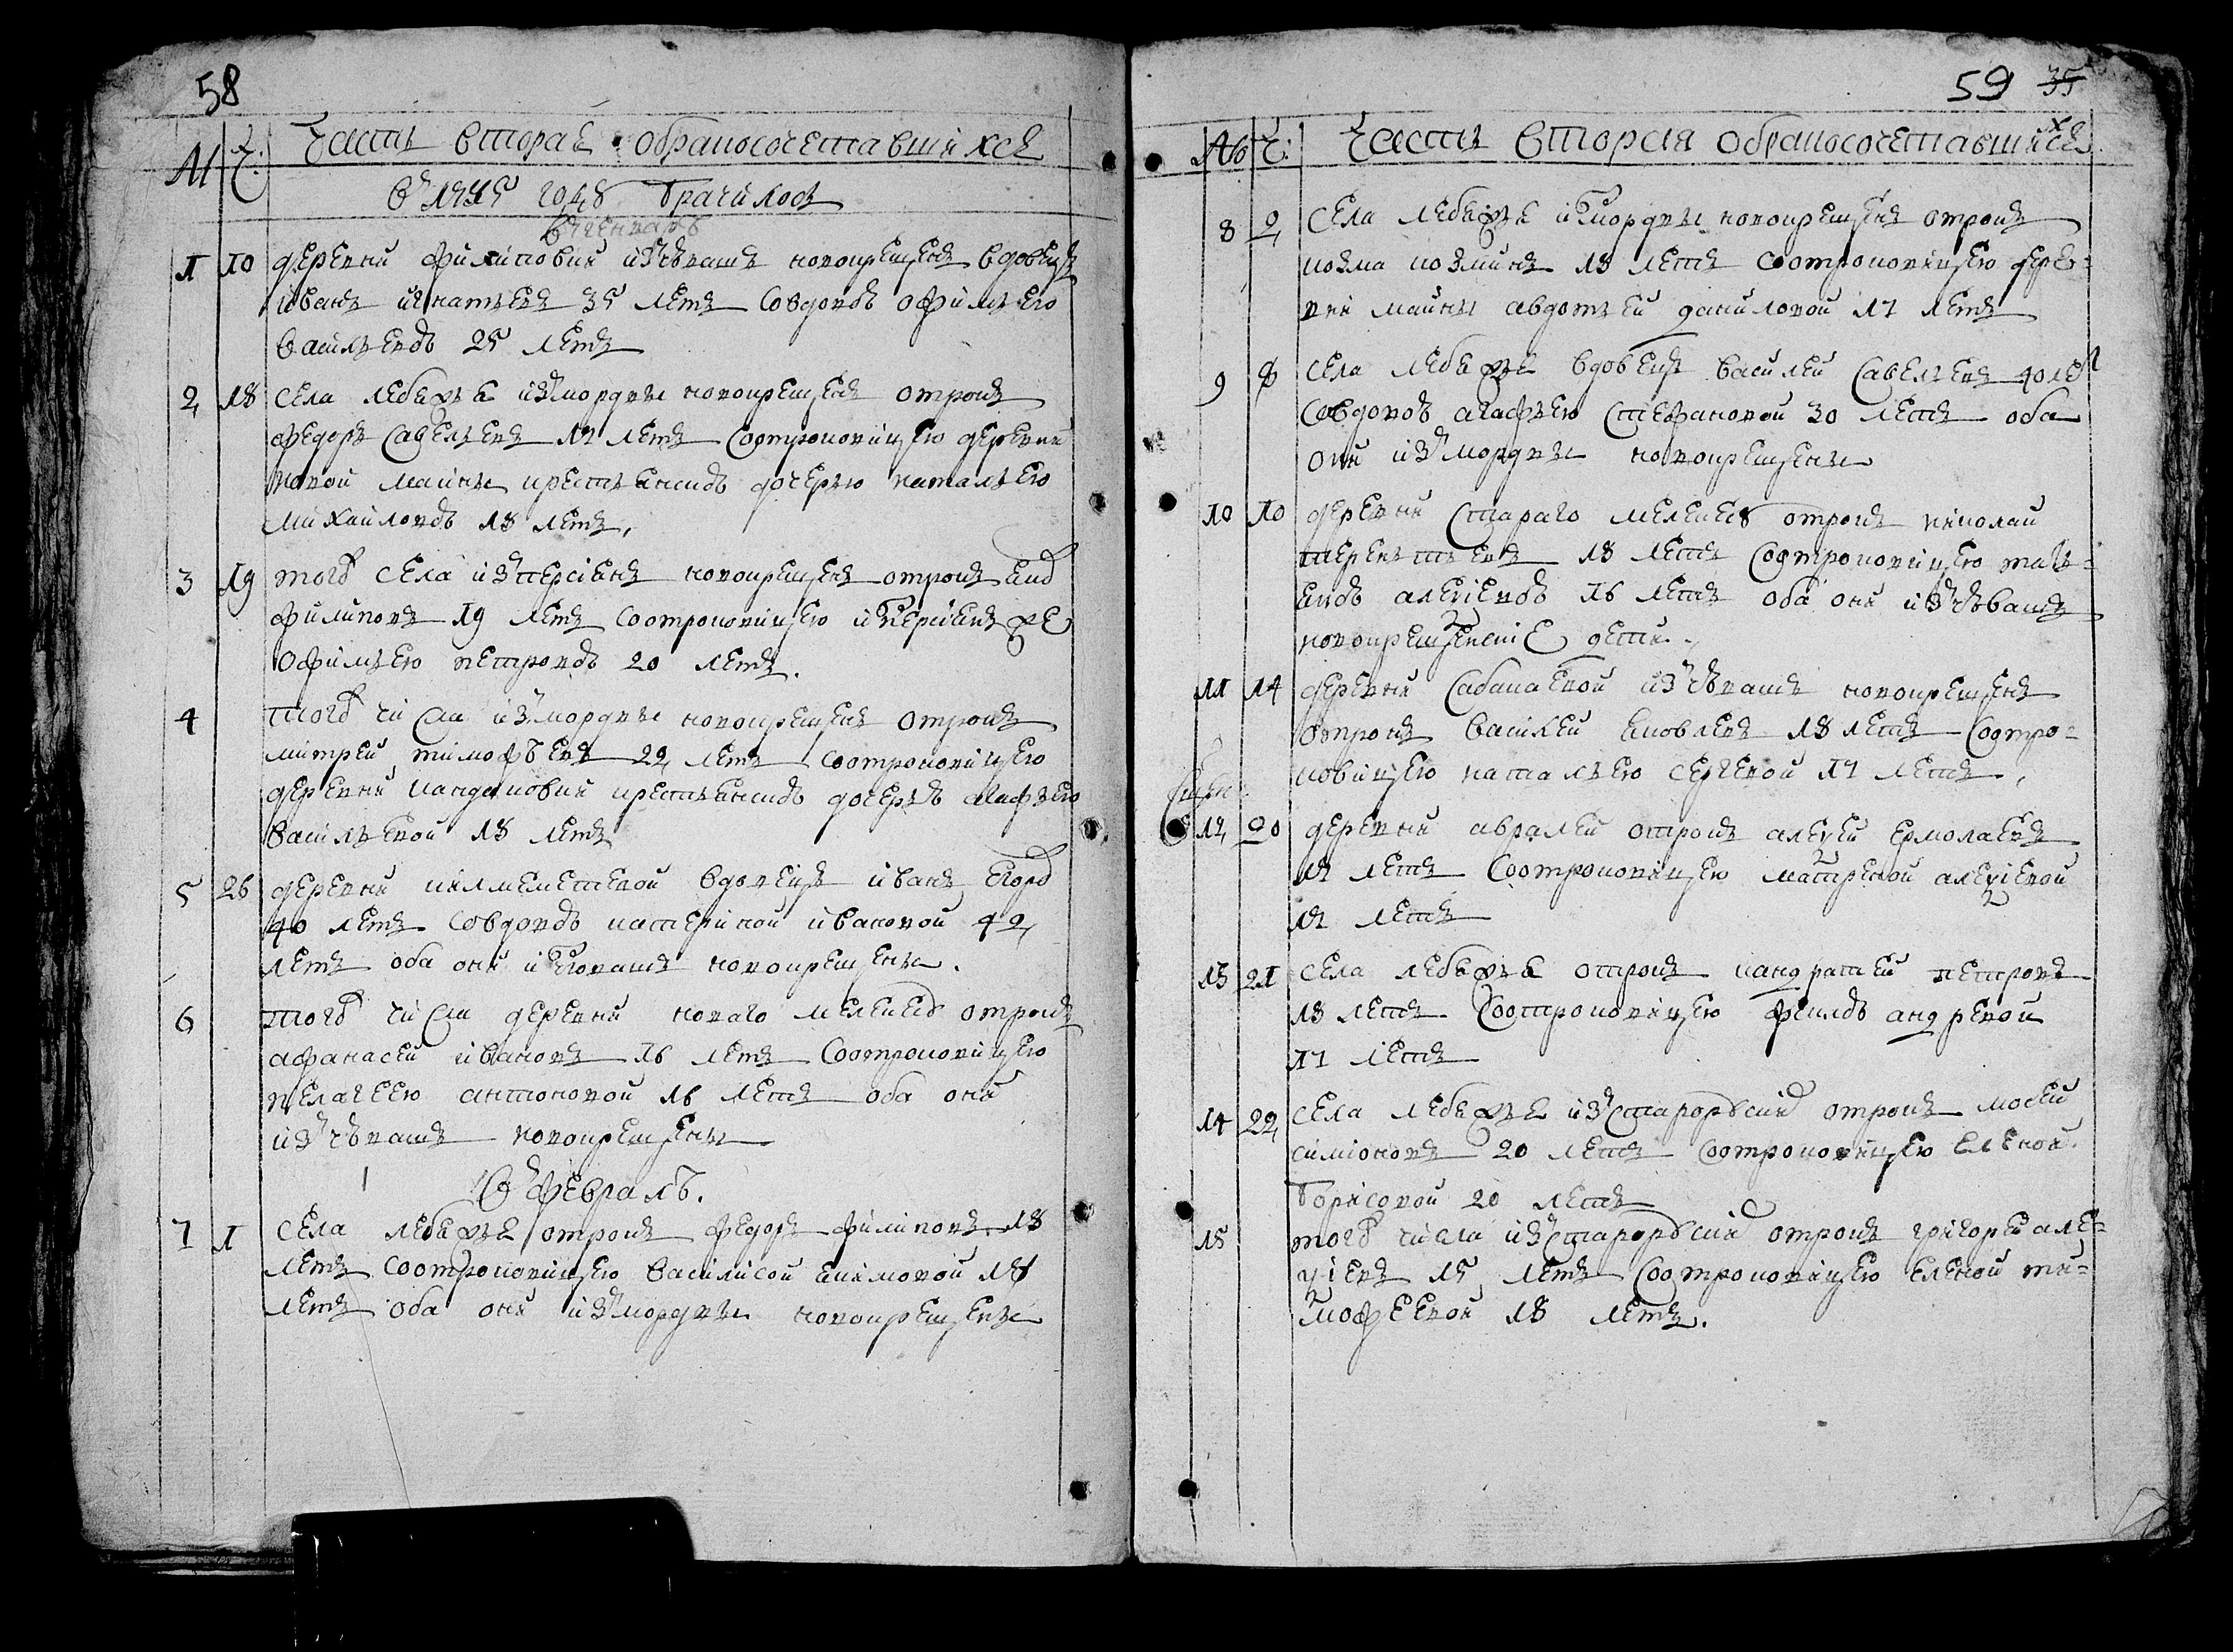 58
№ Ч: Часть вторая обраносочетавшихся
в 1785 году брачилось
в генваре
1 10 деревни филиповки изчювашъ новокрещенъ вдовецъ
иванъ игнатьевъ 35 летъ совдовою офимьею
васильевою 25 летъ
2 18 села лебяжья измордвы новокрещенъ отрокъ
федоръ савельевъ 17 летъ соотроковицею деревни
новой майны крестьянскою дочерью натальею
михайловою 18 летъ,
3 19 того села изперсіянъ новокрещенъ отрокъ яко
филиповъ 19 летъ соотроковицею изперсиянъ же
офимьею петровою 20 летъ.
4 того числа измордвы новокрещенъ отрокъ
митрей тимофѣевъ 22 летъ соотроковицею
деревни кандаковки крестьянскою дочерью агафьею
васильевой 18 летъ
5 26 деревни вдовецъ иванъ егоро
40 летъ совдовою катериной ивановой 42
летъ оба они изчювашъ новокрещены.
6 того числа деревни новаго мелекесу отрокъ
афанасей ивановъ 16 летъ соотроковицею
пелагеею антоновой 16 летъ оба они
изчювашъ новокрещены
в феврале.
7 1 села лебяжья отрокъ федоръ филиповъ 18
летъ соотроковицею василисой акимовой 18
летъ оба они измордвы новокрещены
59 35
№ Ч: Часть вторая обраносочетавшихся
8 2 села лебяжья измордвы новокрещенъ отрокъ
козма козминъ 18 летъ соотроковицею дерев=
ни майны авдотьей даниловой 17 летъ
9 8 села лебяжье вдовецъ василей савельевъ 40 лѣт
совдовою агафьею стефановой 30 летъ оба
они измордвы новокрещены
10 10 деревни стараго мелекесу отрокъ николай
терентьевъ 18 летъ соотроковицею тать=
яною алексіевою 16 летъ оба они изчювашъ
новокрещенскіе дети.
11 14 деревни сабакаевой изчювашъ новокрещенъ
отрокъ василей яковлевъ 18 летъ соотро=
ковицею натальею сергевой 17 летъ,
12 20 деревни авралей отрокъ алексей ермолаевъ
17 летъ соотроковицею матреной алексіевой
17 летъ
13 21 села лебяжья отрокъ кандратей петровъ
18 летъ соотроковицею феклою андревой
17 летъ
14 22 села лебяжье изстарорускихъ отрокъ мосей
симіоновъ 20 летъ соотроковицею еленой
борисовой 20 летъ
15 того числа изстарорускихъ отрокъ григорей але=
ксіевъ 15 летъ соотроковицею еленой ти=
мофеевой 18 летъ.